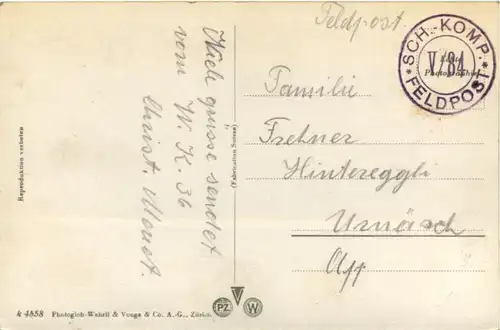 Feldpost.
SCH. KOMP.
V/84
* FELDPOST *
Echte
Photographie
Familie
Frehner
Hintereggli
Urnäsch
App
Viele grüsse sendet
vom W. K. 36
Christ.
Reproduktion verboten
(Fabrication Suisse)
k 4858 Photoglob-Wehrli & Vouga & Co. A.-G., Zürich.
PZ
V
W